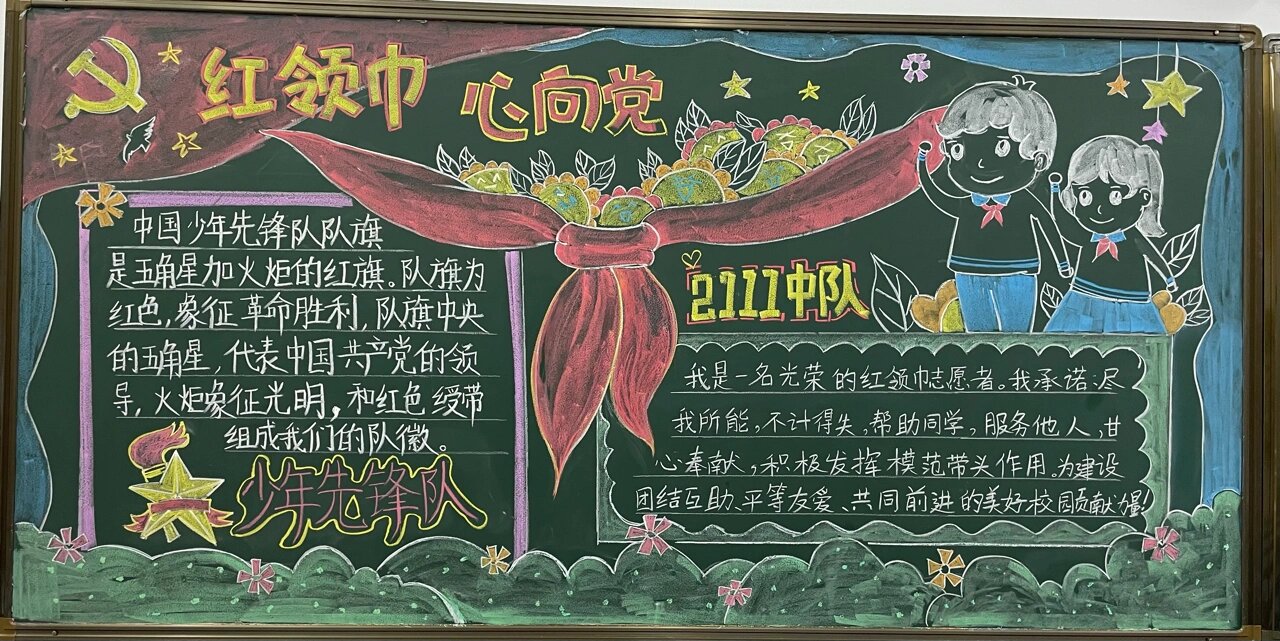 红领巾 心向党
中国少年先锋队队旗
是五角星加火炬的红旗。队旗为
红色,象征革命胜利,队旗中央
的五角星,代表中国共产党的领
导,火炬象征光明,和红色绶带
组成我们的队徽。
少年先锋队
2111中队
我是一名光荣的红领巾志愿者。我承诺:尽
我所能,不计得失,帮助同学,服务他人,甘
心奉献,积极发挥模范带头作用。为建设
团结互助、平等友爱、共同前进的美好校园贡献力量!